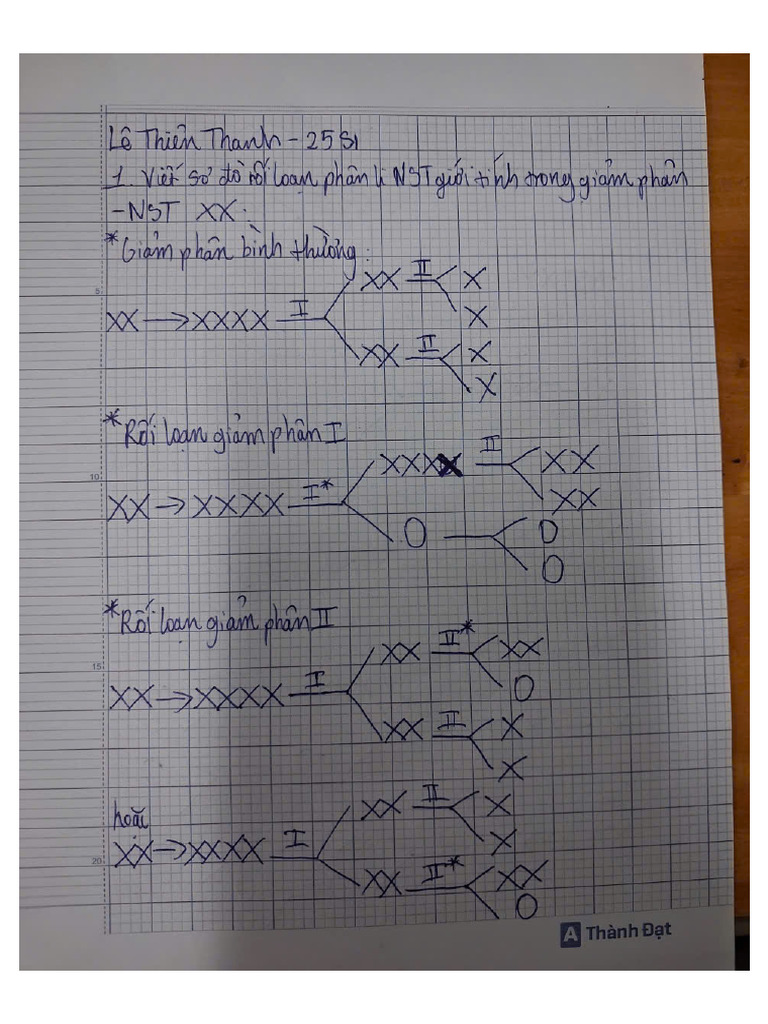 Lê Thiên Thanh - 25S1
1. Viết sơ đồ rối loạn phân li NST giới tính trong giảm phân
- NST XX:
* Giảm phân bình thường:
XX II X
X
5
XX → XXXX I
XX II X
X
* Rối loạn giảm phân I
XXXX II XX
10
XX → XXXX I*
XX
O O
O
* Rối loạn giảm phân II
XX II* XX
15
O
XX → XXXX I
XX II X
X
hoặc
XX II X
X
XX → XXXX I
20
XX II* XX
O
A Thành Đạt